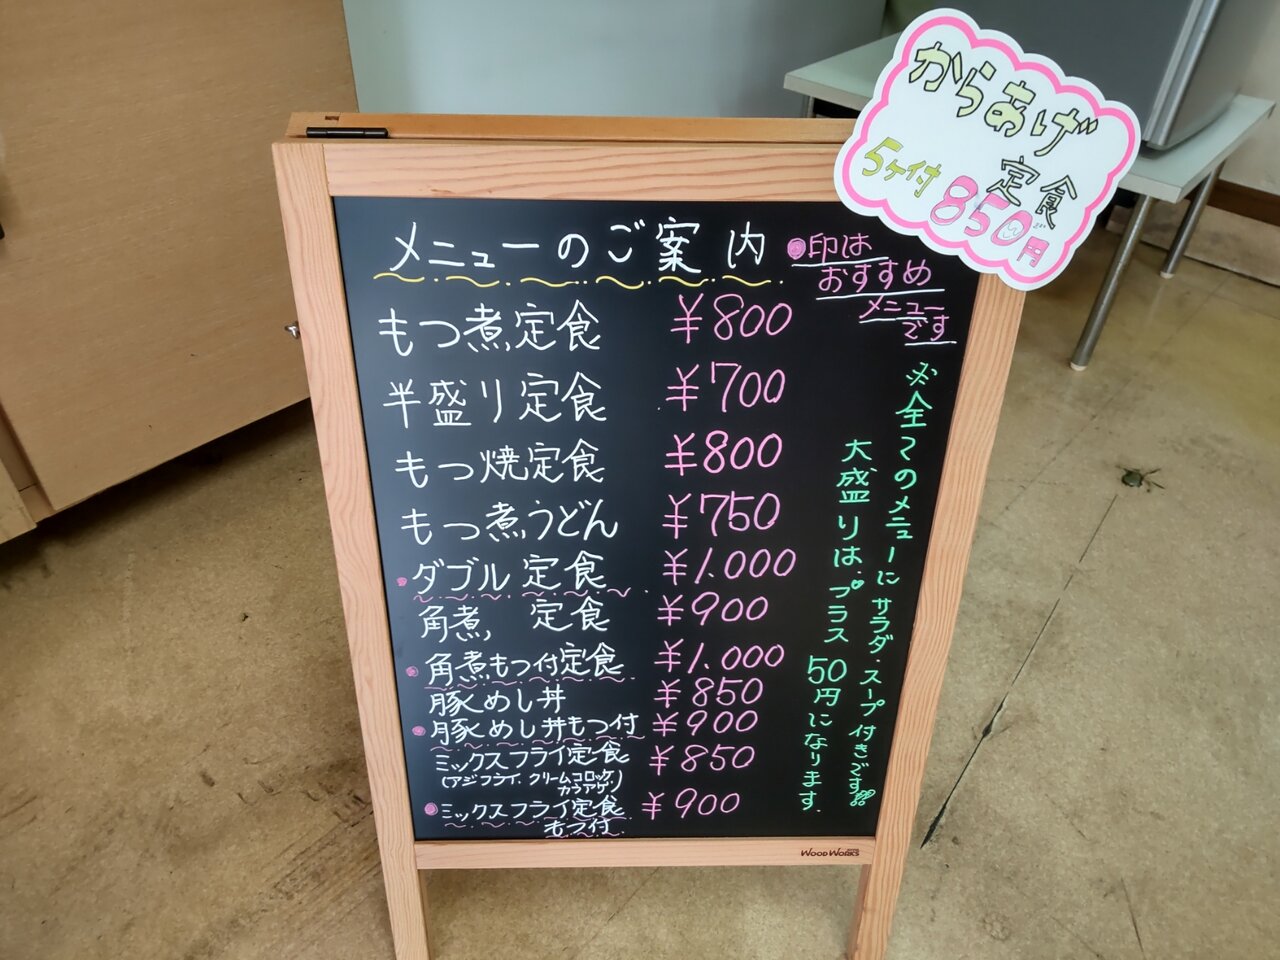 からあげ
定食
5ヶ付 850円
メニューのご案内
●印は
おすすめ
メニュー
です
もつ煮定食 ¥800
半盛り定食 ¥700
もつ焼定食 ¥800
もつ煮うどん ¥750
●ダブル定食 ¥1.000
角煮定食 ¥900
●角煮もつ付定食 ¥1.000
豚めし丼 ¥850
●豚めし丼もつ付 ¥900
ミックスフライ定食 ¥850
(アジフライ.クリームコロッケ.
カラアゲ)
●ミックスフライ定食 ¥900
もつ付
※全てのメニューにサラダ.スープ付きです
大盛りは.プラス50円になります.
WOOD WORKS